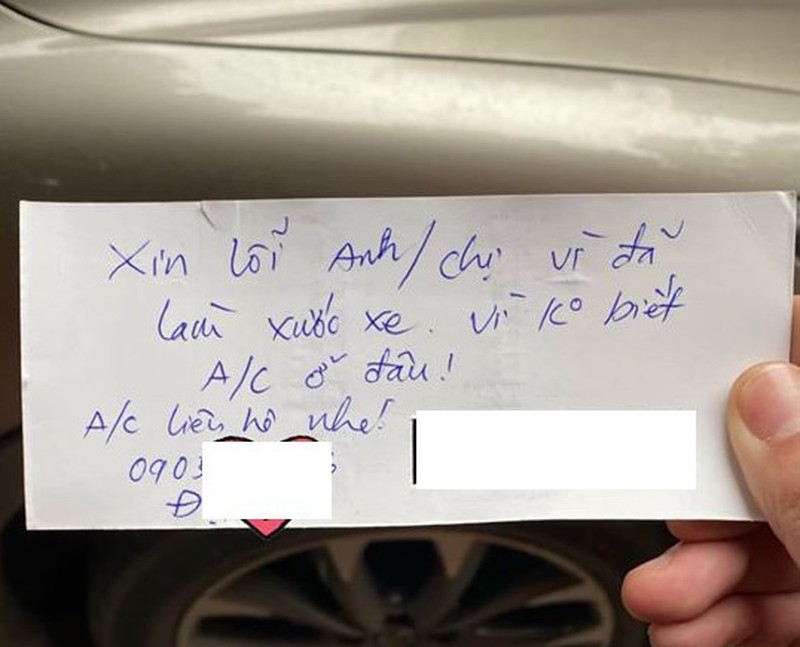 Xin lỗi Anh/chị vì đã
làm xước xe. Vì ko biết
A/C ở đâu!
A/C liên hệ nhé!
0903
Đ